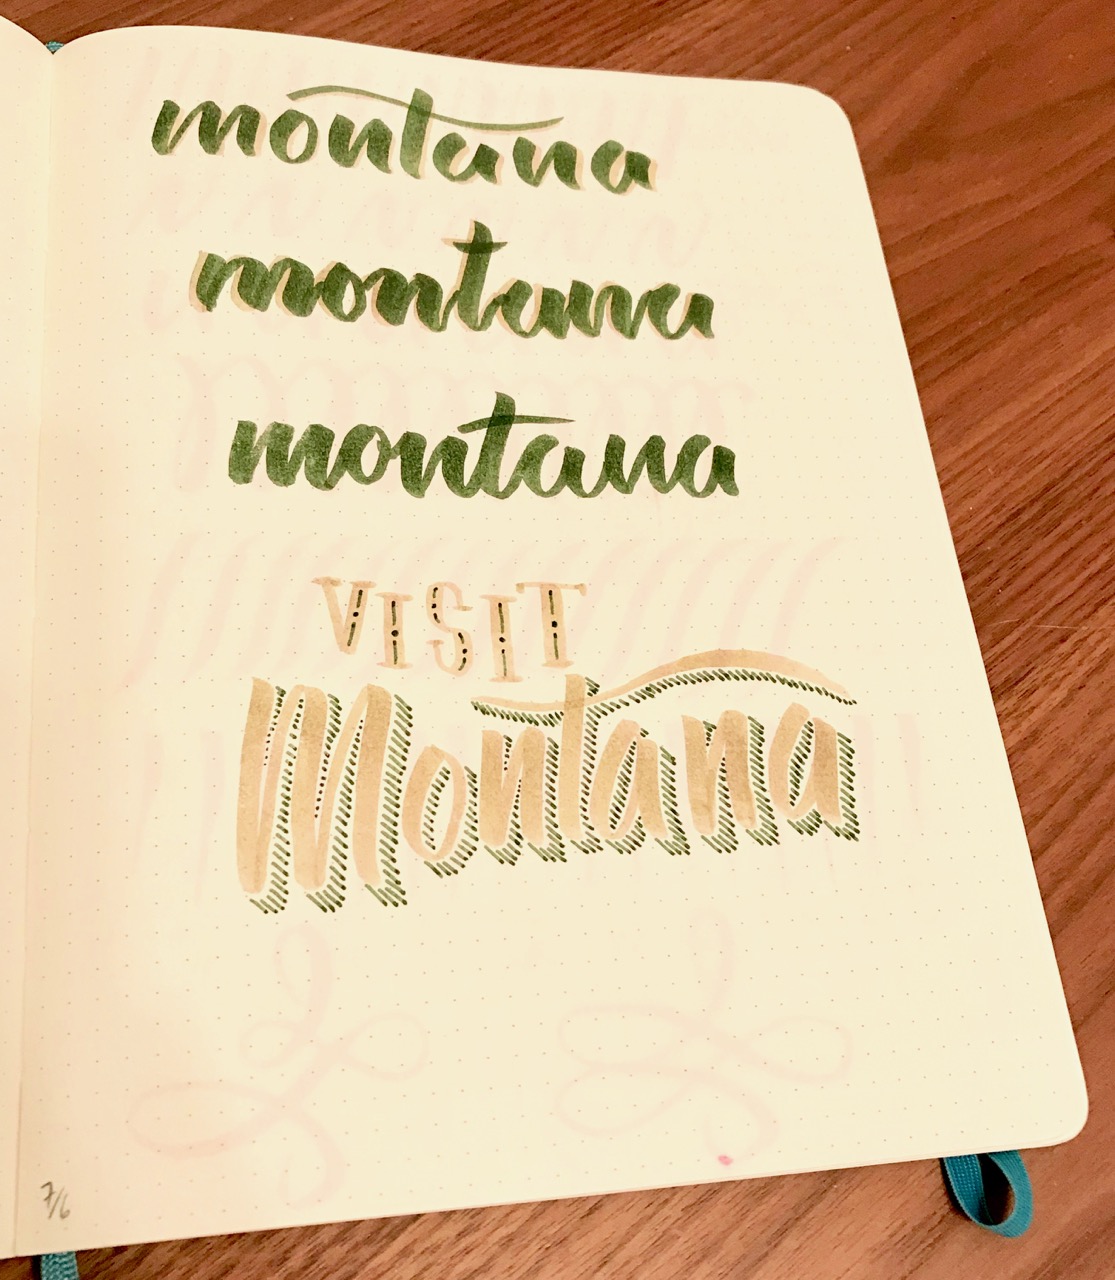 montana
montana
montana
VISIT
Montana
7/6